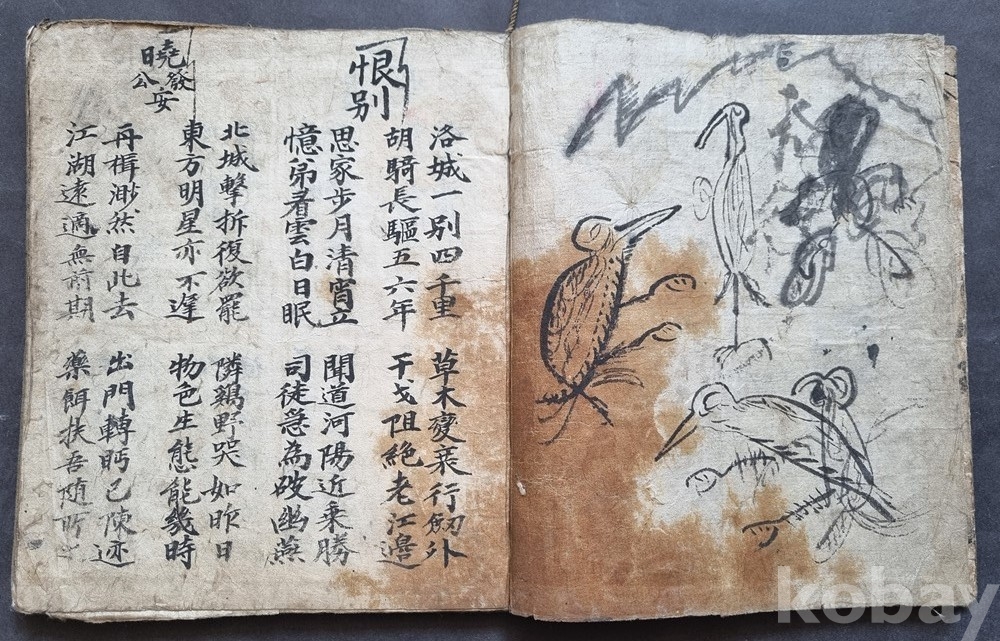 恨別
洛城一別四千里
胡騎長驅五六年
草木變衰行劒外
干戈阻絶老江邊
思家步月清宵立
憶弟看雲白日眠
聞道河陽近乘勝
司徒急為破幽燕
曉發公安
北城擊拆復欲罷
東方明星亦不遲
隣鷄野哭如昨日
物色生態能幾時
舟楫渺然自此去
江湖遠適無前期
出門轉眄已陳迹
藥餌扶吾随所之
kobay